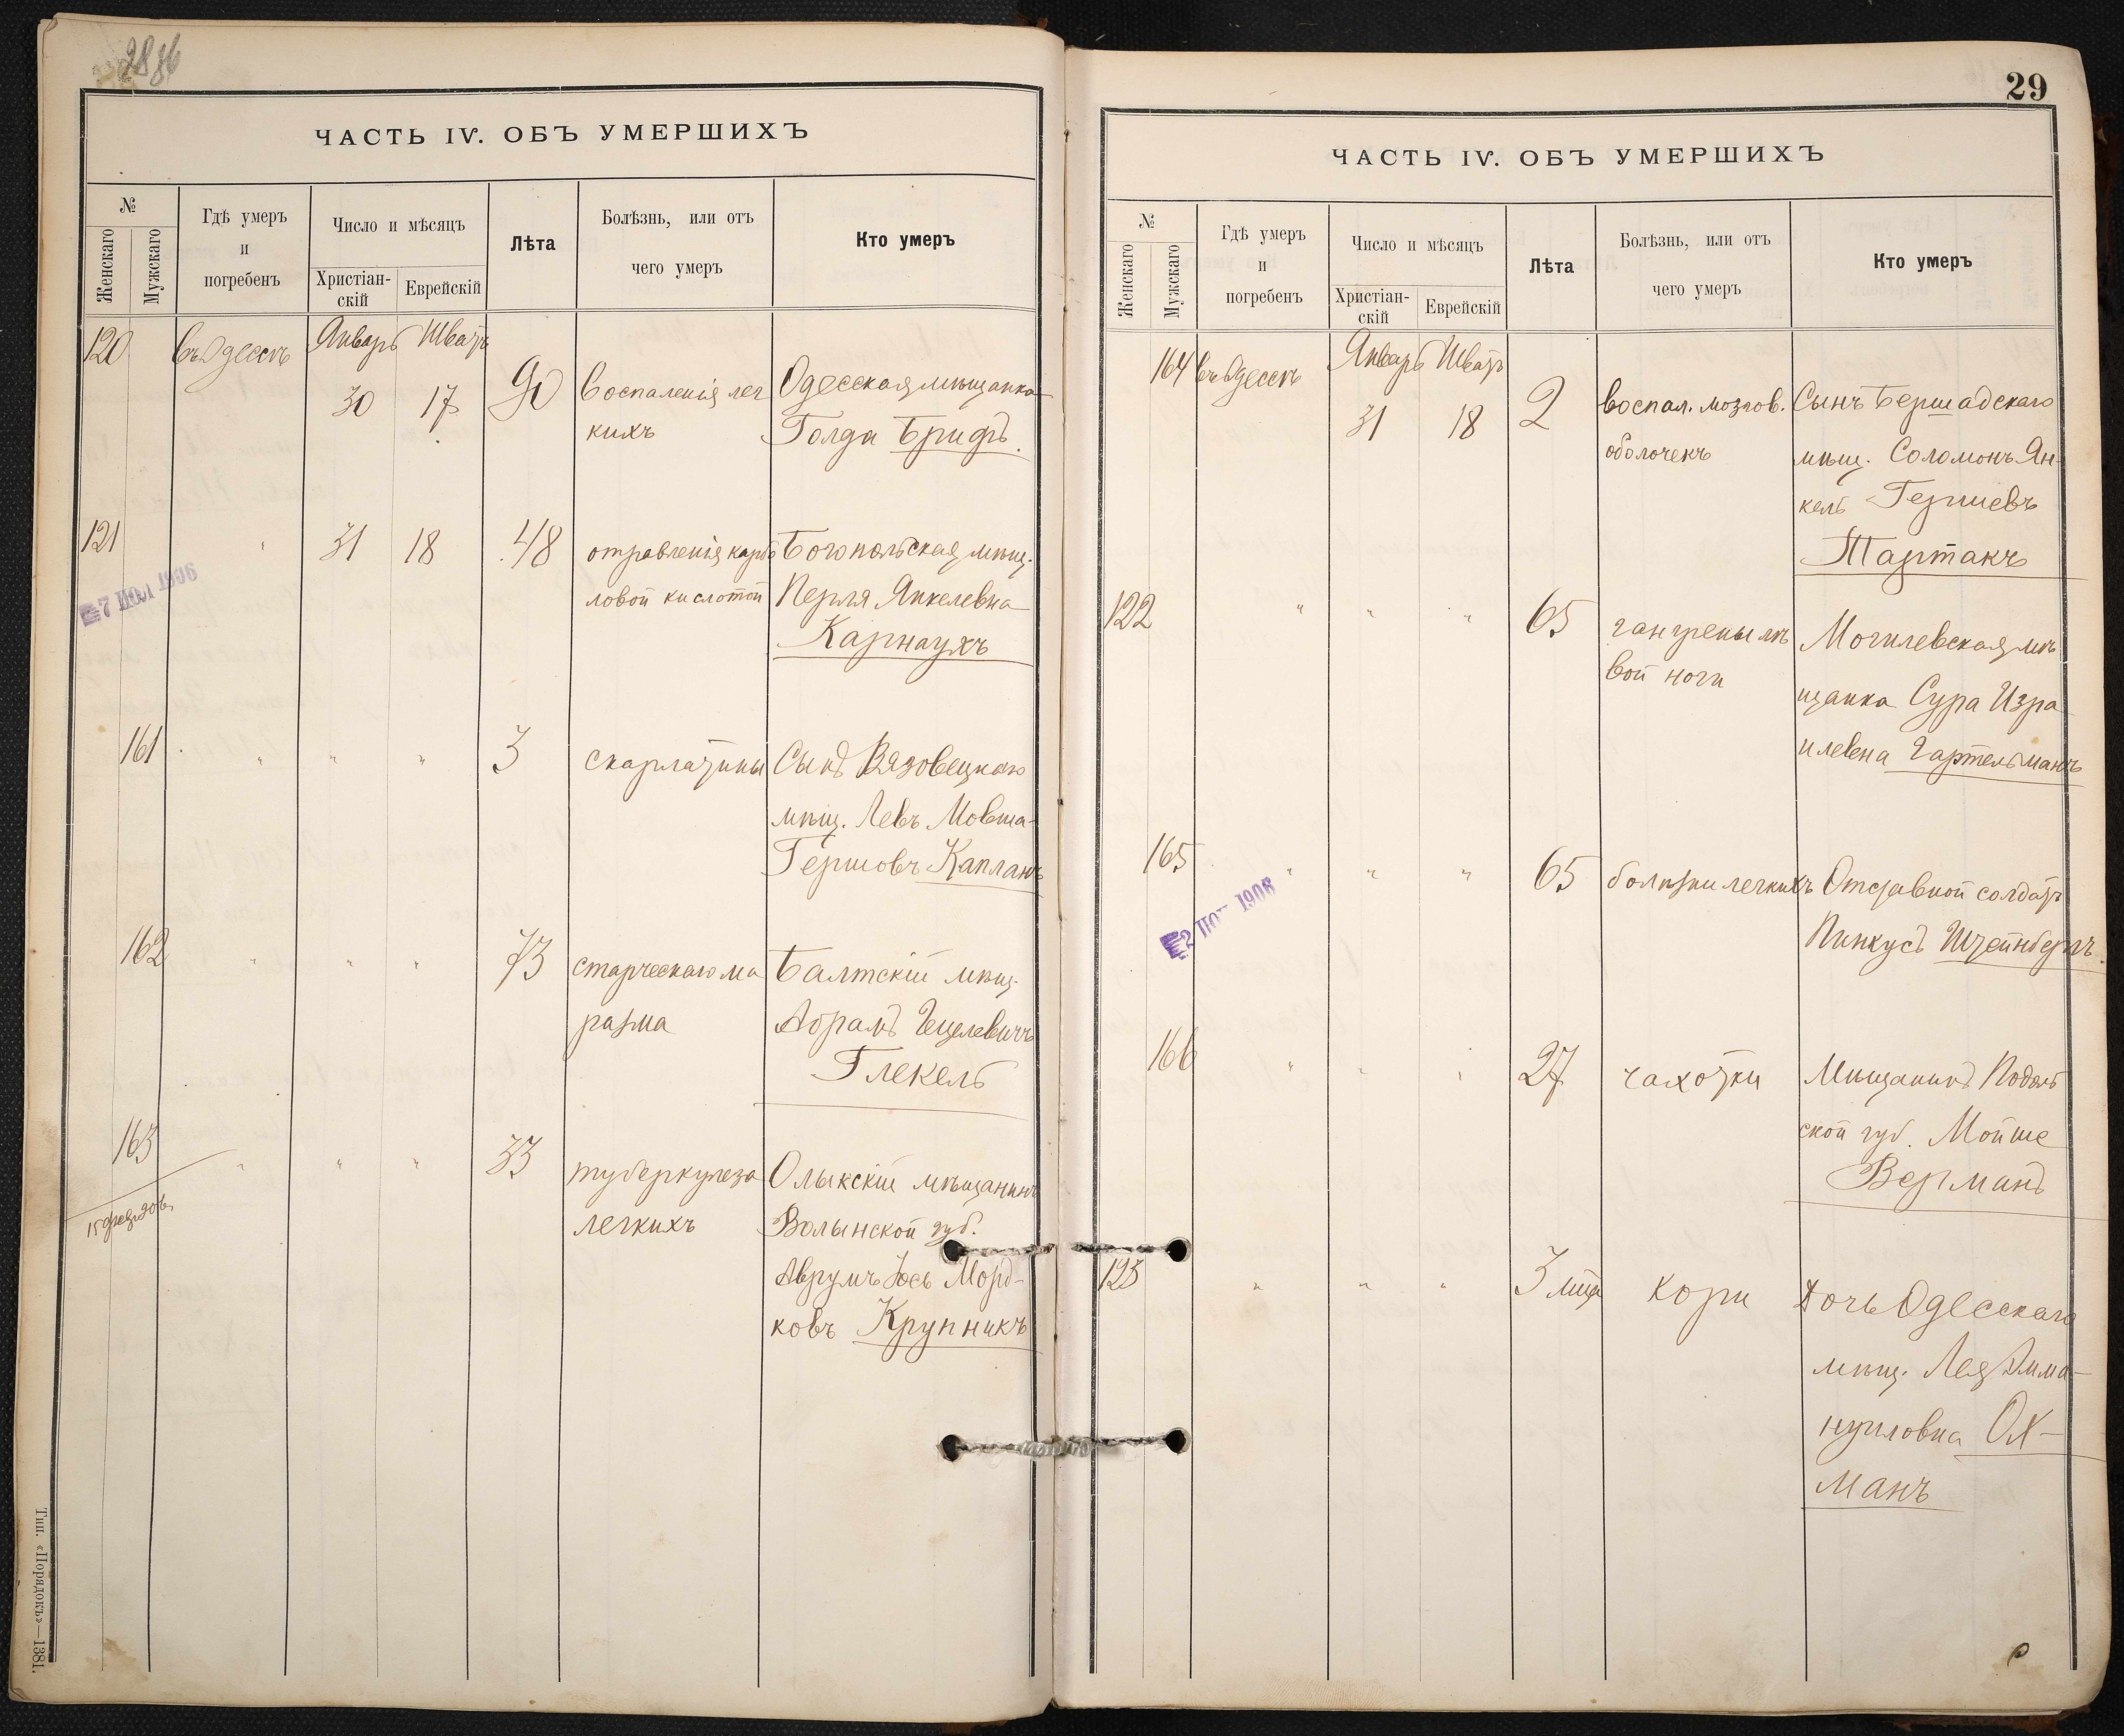 ЧАСТЬ IV. ОБЪ УМЕРШИХЪ
№
Женскаго
Мужскаго
Гдѣ умеръ
и
погребенъ
Число и мѣсяцъ
Христіан-
скій
Еврейскій
Лѣта
Болѣзнь, или отъ
чего умеръ
Кто умеръ
120 въ Одессѣ Январь Шватъ
30 17 90 Воспаленія лег Одесская мѣщанка
кихъ Голда Бридъ.
121 " 31 18 48 отравленія карбо Богопольская мѣщ.
7 1906
ловой кислотой Перля Янкелевна
Карнаухъ
161 " " " 3 скарлатины Сынъ Вязовецкаго
мѣщ. Левъ Мовша-
Гершовъ Капланъ
162 " " " 73 старческаго ма Балтскій мѣщ.
разма Абрамъ Гецелевичъ
Глекель
163 " " " 33 туберкулеза Олыкскій мѣщанинъ
легкихъ Волынской губ.
Аврумъ Іось Морд-
ковъ Крупникъ
Тип. «Порядокъ»—1381.
29
ЧАСТЬ IV. ОБЪ УМЕРШИХЪ
№
Женскаго
Мужскаго
Гдѣ умеръ
и
погребенъ
Число и мѣсяцъ
Христіан-
скій
Еврейскій
Лѣта
Болѣзнь, или отъ
чего умеръ
Кто умеръ
164 въ Одессѣ Январь Шватъ
31 18 2 воспал. мозгов. Сынъ Бершадскаго
оболочекъ мѣщ. Соломонъ Ян-
кель Гершевъ
Тартакъ
122 " " " 65 гангрены лѣ Могилевская мѣ
вой ноги щанка Сура Изра
илевна Гартельманъ
165 " " " 65 болѣзни легкихъ Отставной солдатъ
2 1908
Пинкусъ Штейнбергъ.
166 " " " 27 чахотки Мѣщанинъ Подоль
ской губ. Мойше
Верманъ
123 " " " 3 мца кори Дочь Одесскаго
мѣщ. Лея Эмма-
нуиловна Ох-
манъ